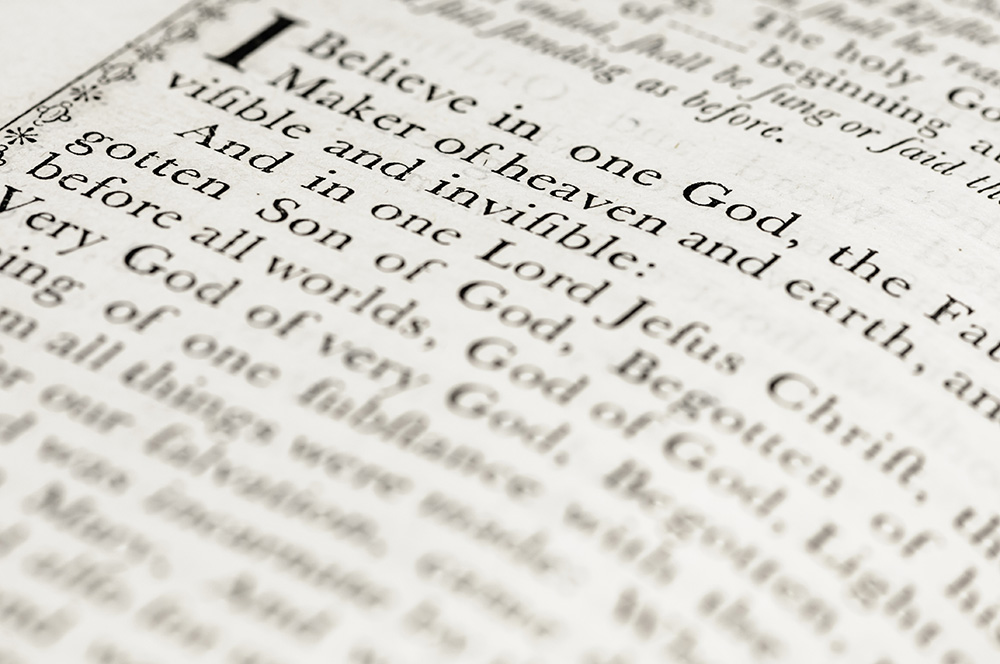 ſhall be rea
The holy Go
of beginning at
ended, ſhall be ſung or ſaid th
ſtill ſtanding as before.
I Believe in one God, the Fat
Maker of heaven and earth, an
viſible and inviſible:
And in one Lord Jeſus Chriſt, th
gotten Son of God, Begotten of h
before all worlds, God of God, Light
Very God of very God, Begotten,
ing of one ſubſtance with the
m all things were made
our ſalvation
was incarnate
Mary, And